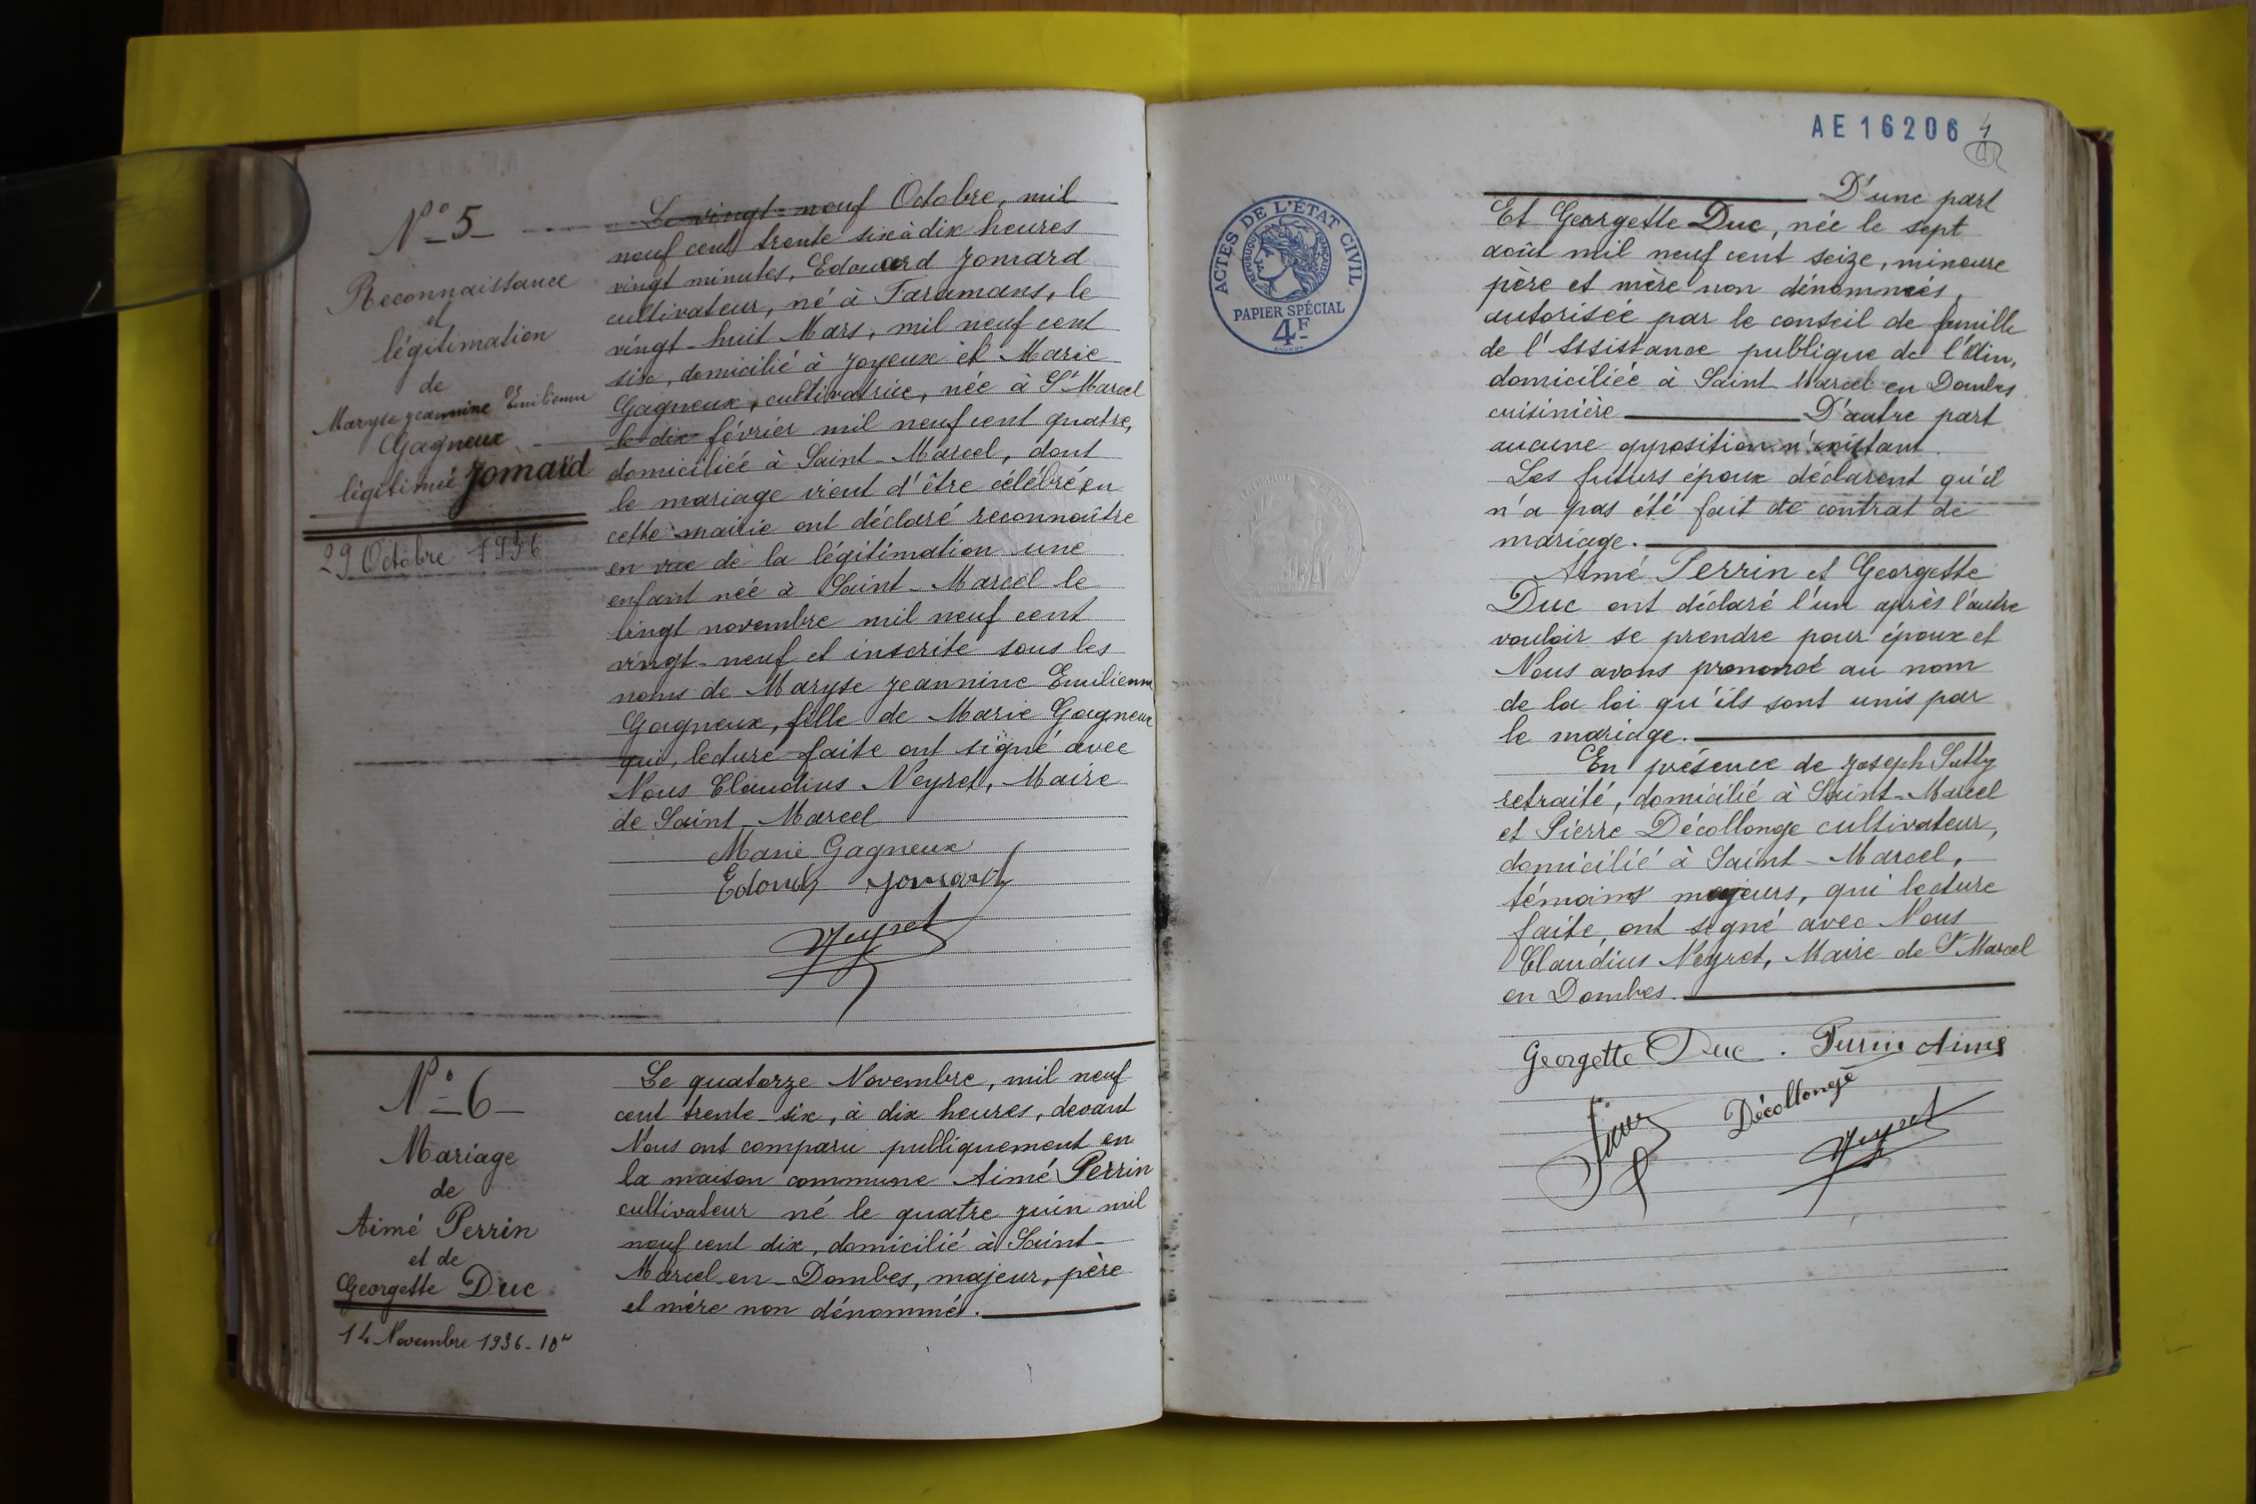 N° 5
Reconnaissance
et
légitimation
de
Maryse Jeannine Emilienne
Gagneux
légitimé Jomard
29 Octobre 1936
Le vingt-neuf Octobre, mil
neuf cent trente six à dix heures
vingt minutes, Edouard Jomard
cultivateur, né à Faramans, le
vingt-huit Mars, mil neuf cent
six, domicilié à Joyeux et Marie
Gagneux, cultivatrice, née à St Marcel
le dix février mil neuf cent quatre,
domiciliée à Saint-Marcel, dont
le mariage vient d'être célébré en
cette mairie ont déclaré reconnaître
en vue de la légitimation une
enfant née à Saint-Marcel le
vingt novembre mil neuf cent
vingt-neuf et inscrite sous les
noms de Maryse Jeannine Emilienne
Gagneux, fille de Marie Gagneux
qui, lecture faite ont signé avec
Nous Claudius Neyret, Maire
de Saint-Marcel
Marie Gagneux
Edouard Jomard
Neyret
N° 6
Mariage
de
Aimé Perrin
et de
Georgette Duc
14 Novembre 1936 - 10 h
Le quatorze Novembre, mil neuf
cent trente-six, à dix heures, devant
Nous ont comparu publiquement en
la maison commune Aimé Perrin
cultivateur né le quatre juin mil
neuf cent dix, domicilié à Saint-
Marcel-en-Dombes, majeur, père
et mère non dénommés.
AE 16206
ACTES DE L'ÉTAT CIVIL
RÉPUBLIQUE FRANÇAISE
PAPIER SPÉCIAL
4F
D'une part
Et Georgette Duc, née le sept
août mil neuf cent seize, mineure
père et mère non dénommés,
autorisée par le conseil de famille
de l'Assistance publique de l'Ain,
domiciliée à Saint Marcel en Dombes
cuisinière D'autre part
aucune opposition n'existant.
Les futurs époux déclarent qu'il
n'a pas été fait de contrat de
mariage.
Aimé Perrin et Georgette
Duc ont déclaré l'un après l'autre
vouloir se prendre pour époux et
Nous avons prononcé au nom
de la loi qu'ils sont unis par
le mariage.
En présence de Joseph
retraité, domicilié à Saint-Marcel
et Pierre Décollonge cultivateur,
domicilié à Saint-Marcel,
témoins majeurs, qui lecture
faite, ont signé avec Nous
Claudius Neyret, Maire de St Marcel
en Dombes.
Georgette Duc. Perrin Aimé
Décollonge
Neyret